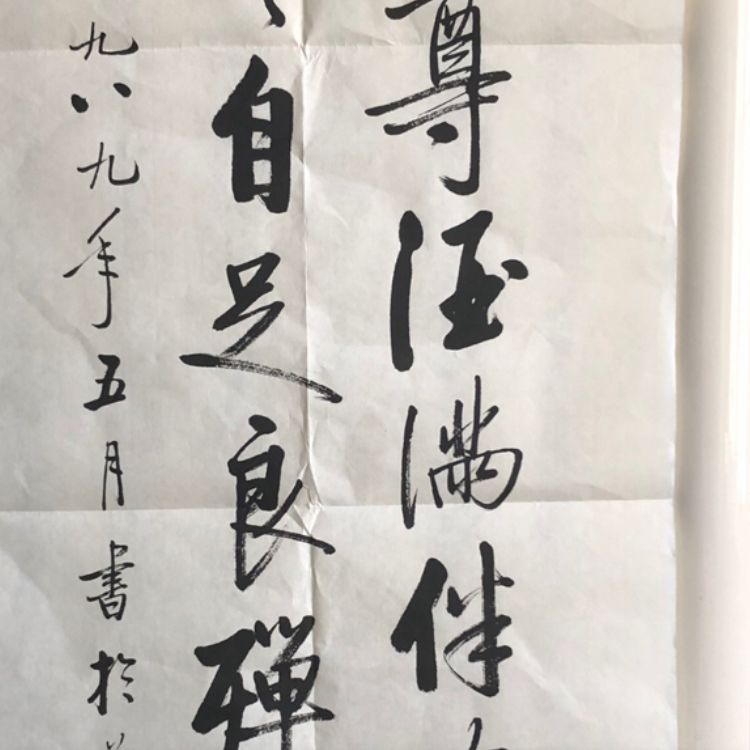 尊酒满伴
自足良
九八九年五月書於